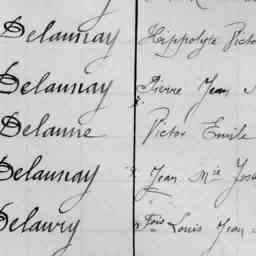 Delaunay Hippolyte Victo
Delaunay Pierre Jean
Delaune Victor Emile
Delaunay Jean Mie José
Delaury Fois Louis Jean